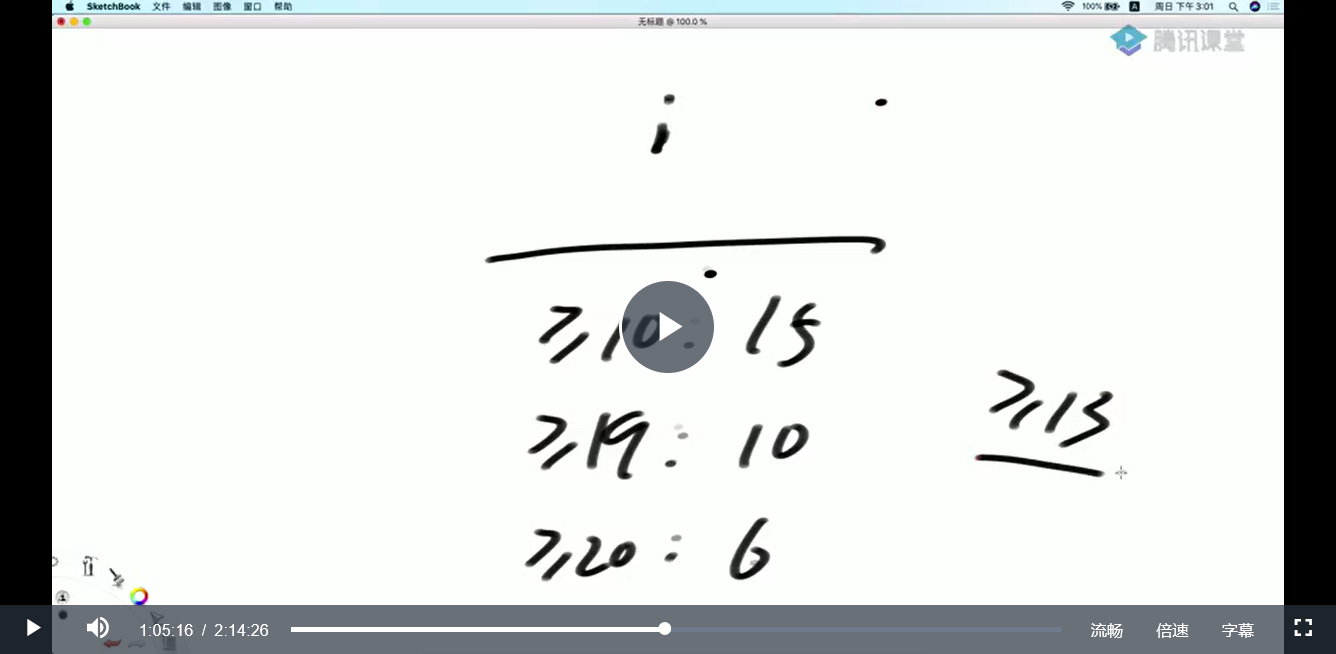 SketchBook 文件 编辑 图像 窗口 帮助 100% A 周日 下午3:01
无标题 @ 100.0 %
腾讯课堂
i
≥10: 15
≥19: 10
≥13
≥20: 6
1:05:16 / 2:14:26 流畅 倍速 字幕